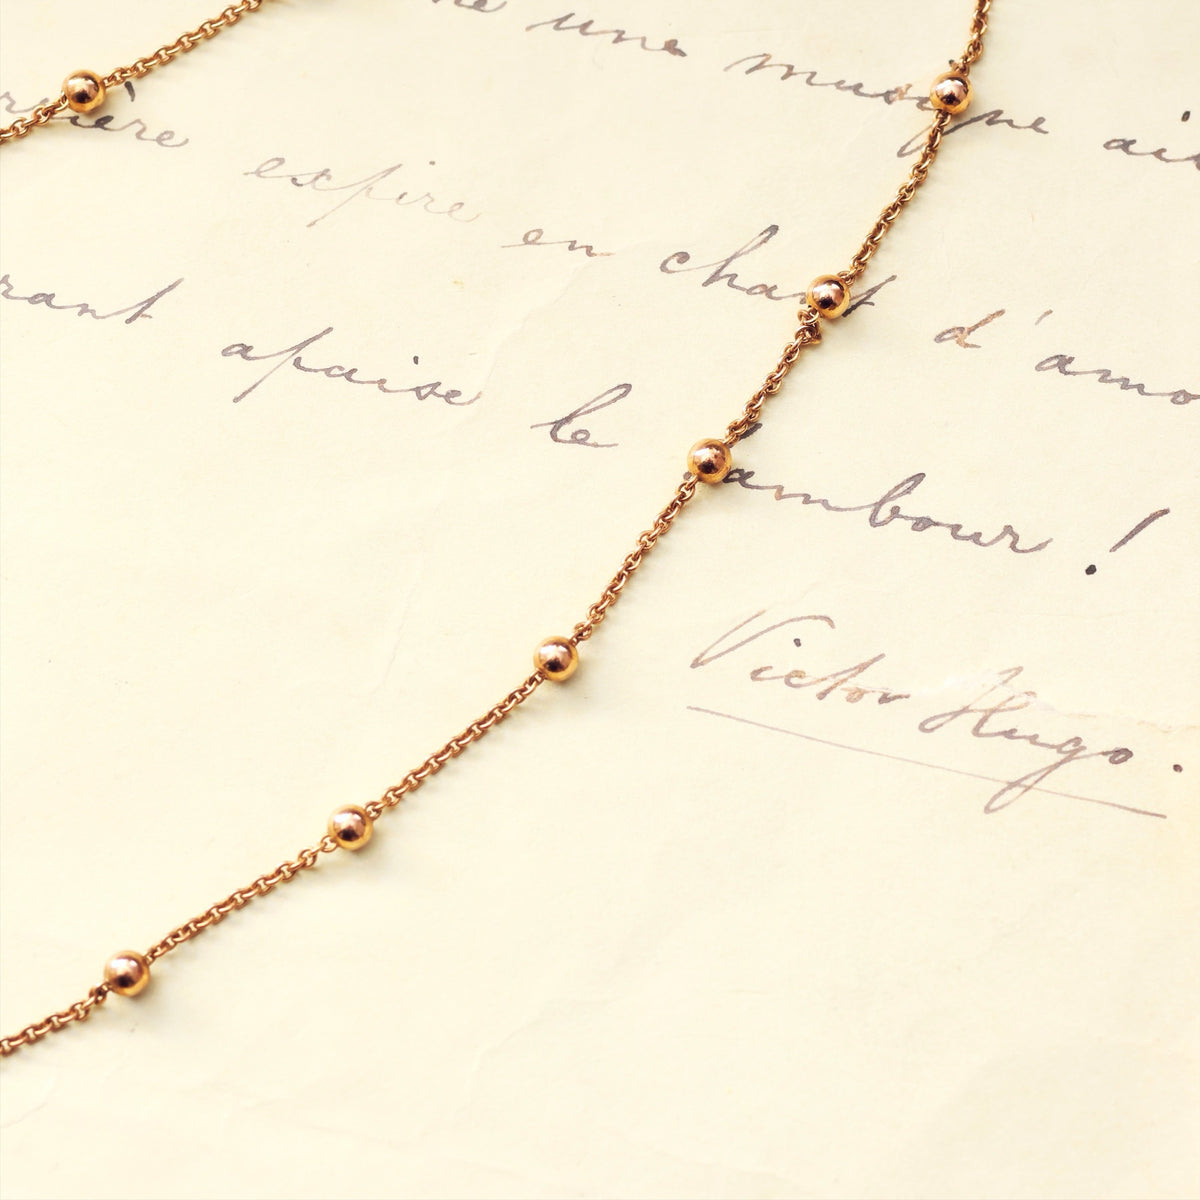 une musique
expire en chant d'amo
rant apaise le tambour !
Victor Hugo.